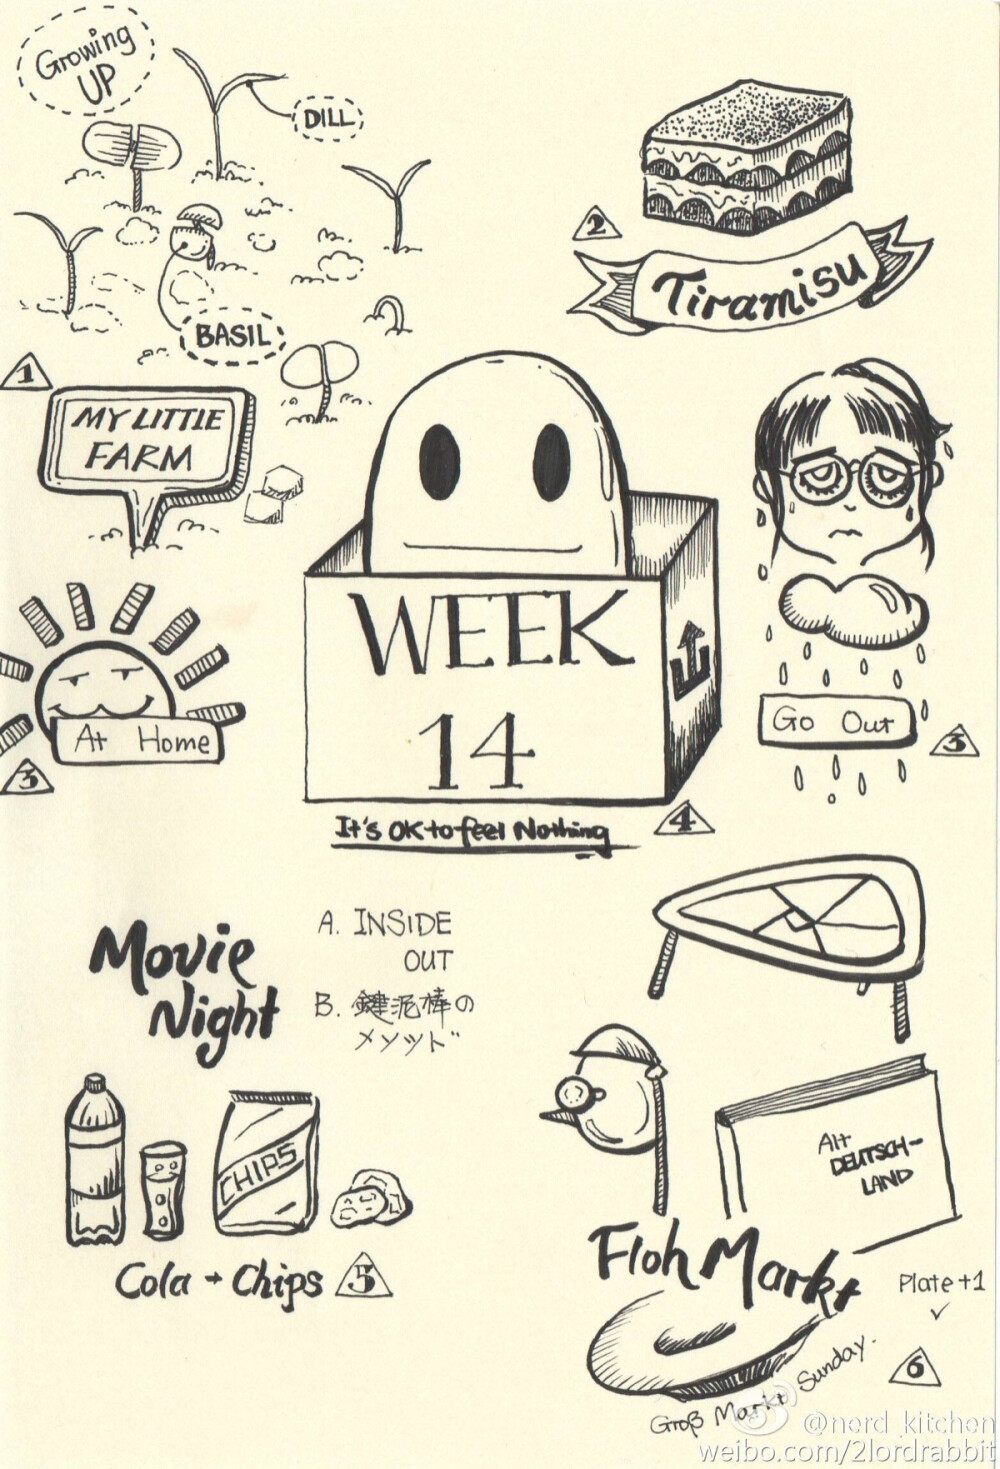 Growing
UP
DILL
BASIL
1
MY LITTLE
FARM
2
Tiramisu
At Home
3
Go Out
3
WEEK
14
It's OK to feel Nothing
4
Movie
Night
A. INSIDE
OUT
B. 鍵泥棒の
メソッド
CHIPS
Cola + Chips
5
Alt
DEUTSCH-
LAND
Floh Markt
Plate+1
✓
Groß Markt Sunday.
6
@nerd_kitchen
weibo.com/2lordrabbit